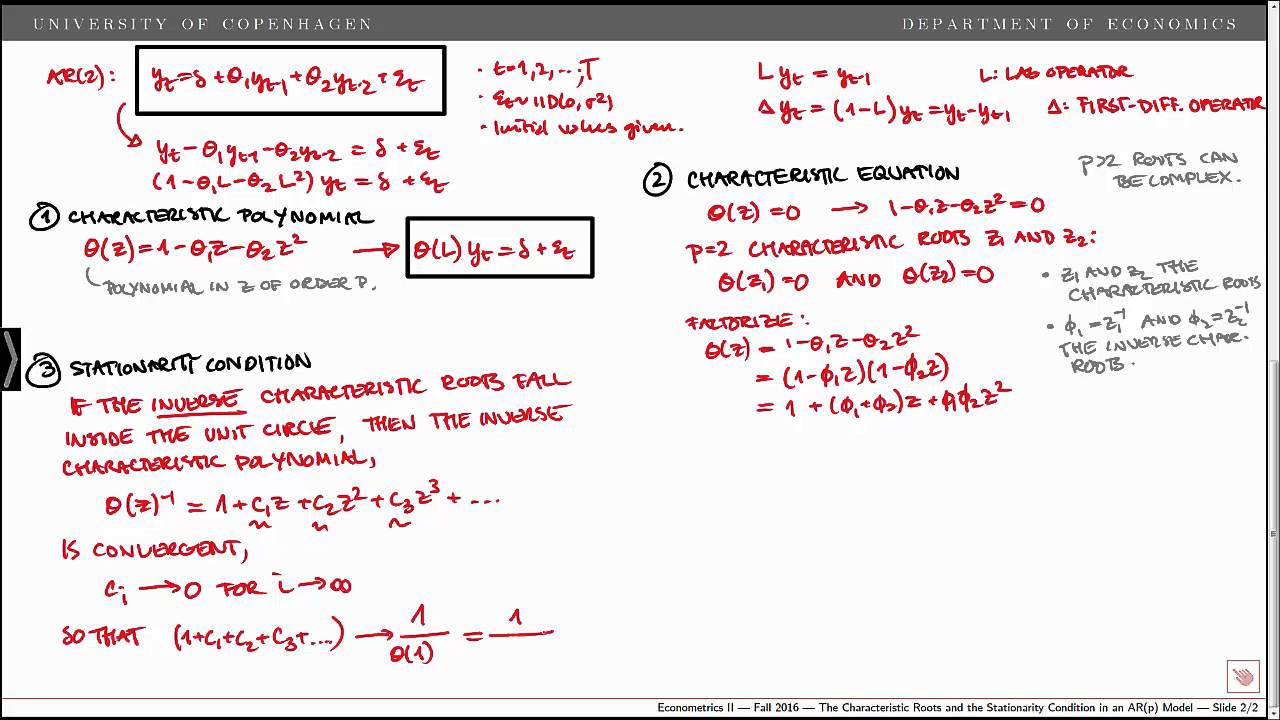 UNIVERSITY OF COPENHAGEN
DEPARTMENT OF ECONOMICS
AR(2): yt = δ + θ1yt-1 + θ2yt-2 + εt
· t=1,2,...,T
· εt ~ IID(0,σ²)
· Initial values given.
yt - θ1yt-1 - θ2yt-2 = δ + εt
(1-θ1L-θ2L²) yt = δ + εt
L yt = yt-1
L: LAG OPERATOR
Δ yt = (1-L) yt = yt - yt-1
Δ: FIRST-DIFF. OPERATOR
① CHARACTERISTIC POLYNOMIAL
θ(z) = 1 - θ1z - θ2z² → θ(L) yt = δ + εt
POLYNOMIAL IN Z OF ORDER P.
② CHARACTERISTIC EQUATION
P>2 ROOTS CAN
BE COMPLEX.
θ(z) = 0 → 1-θ1z-θ2z² = 0
P=2 CHARACTERISTIC ROOTS Z1 AND Z2:
θ(z1) = 0 AND θ(z2) = 0
· Z1 AND Z2 THE
CHARACTERISTIC ROOTS
· ϕ1 = z1⁻¹ AND ϕ2 = z2⁻¹
THE INVERSE CHAR.
ROOTS.
FACTORIZE:
θ(z) = 1-θ1z-θ2z²
= (1-ϕ1z)(1-ϕ2z)
= 1 + (ϕ1+ϕ2)z + ϕ1ϕ2z²
③ STATIONARITY CONDITION
IF THE INVERSE CHARACTERISTIC ROOTS FALL
INSIDE THE UNIT CIRCLE, THEN THE INVERSE
CHARACTERISTIC POLYNOMIAL,
θ(z)⁻¹ = 1 + c1z + c2z² + c3z³ + ....
IS CONVERGENT,
ci → 0 FOR i → ∞
SO THAT (1+c1+c2+c3+....) → 1/θ(1) = 1/
Econometrics II — Fall 2016 — The Characteristic Roots and the Stationarity Condition in an AR(p) Model — Slide 2/2